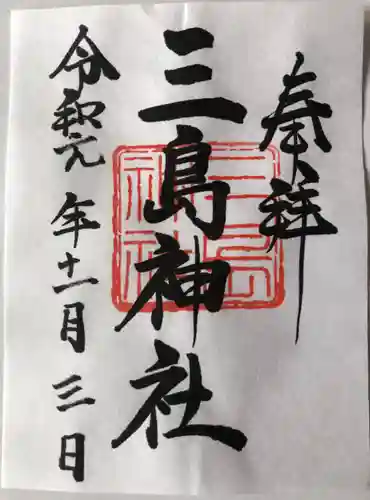 奉拝
三島神社
令和元年十一月三日
三島神社